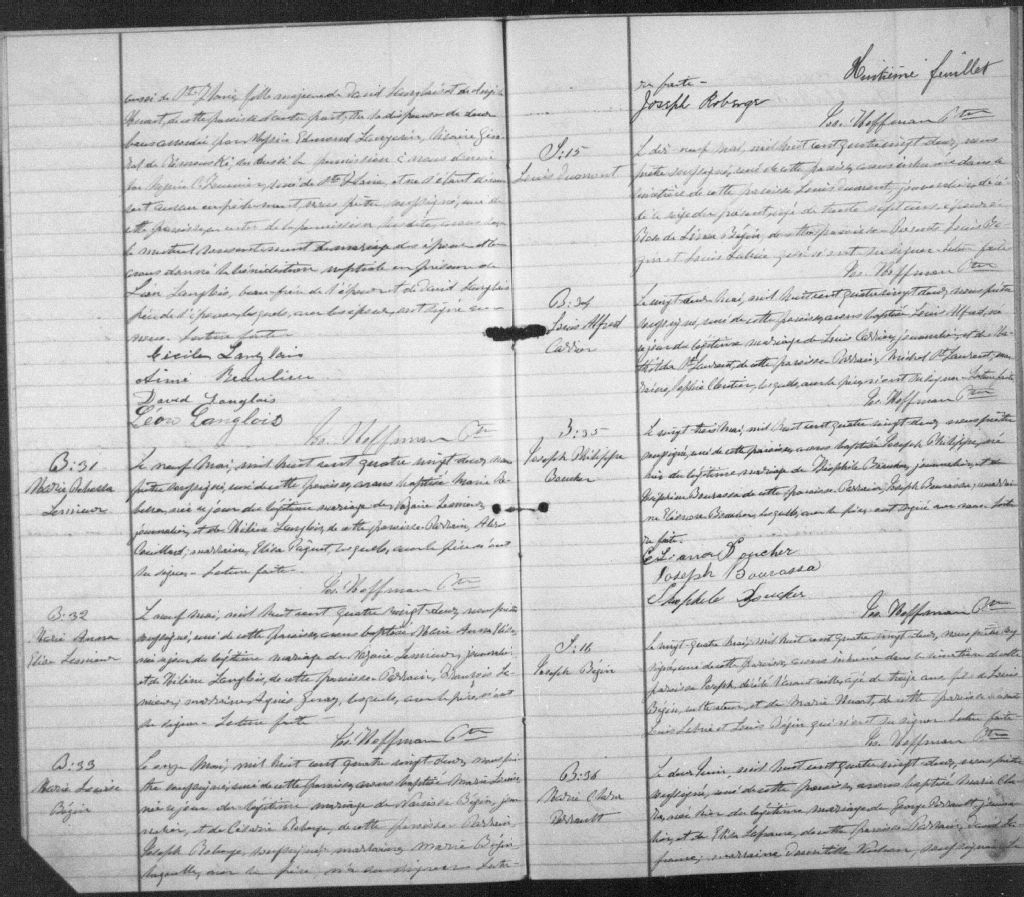 aussi de Ste Flavie, fille majeure de David Langlois et de
Huart, de cette paroisse d'autre part; vu la dispense de deux
bans accordée par Messire Edmond Langevin, Vicaire Géné-
ral de Rimouski,
par Messire
cette paroisse, en vertu de la permission
le mutuel consentement de mariage des époux et le-
avons donné la bénédiction nuptiale en présence de
Léon Langlois, beau-frère de l'époux et de David Langlois
père de l'épouse, lesquels, avec les époux, ont signé avec
nous. Lecture faite
Cécile Langlois
Aimé Beaulieu
David Langlois
Léon Langlois
Jos. Hoffman Ptre
B: 31
Marie Rebecca
Lemieux
Le neuf Mai, mil huit cent quatre vingt deux, nous
prêtre soussigné, curé de cette paroisse, avons baptisé Marie Re-
becca, née ce jour du légitime mariage de Nazaire Lemieux,
journalier, et de Héline Langlois, de cette paroisse. Parrain,
marraine, Elisa Paquet, lesquels, avec le père n'ont
su signer. Lecture faite.
Jos. Hoffman Ptre
B: 32
Marie Anna
Elise Lemieux
Le neuf Mai, mil huit cent quatre vingt deux, nous prêtre
soussigné, curé de cette paroisse, avons baptisé Marie Anna Elise,
née ce jour du légitime mariage de Nazaire Lemieux, journalier
et de Héline Langlois, de cette paroisse. Parrain, François Le-
mieux; marraine Agnès lesquels, avec le père, n'ont
su signer. Lecture faite.
Jos. Hoffman Ptre
B: 33
Marie Louise
Bégin
Le onze Mai, mil huit cent quatre vingt deux, nous prê-
tre soussigné, curé de cette paroisse, avons baptisé Marie Louise
née ce jour du légitime mariage de Narcisse Bégin, jour-
nalier, et de Césarie Roberge, de cette paroisse. Parrain
Joseph Roberge, soussigné; marraine, Marie Bégin
laquelle, avec le père, n'a su signer. Lectu-
Huitième feuillet
re faite.
Joseph Roberge
Jos. Hoffman Ptre
S: 15
Louis Dumont
Le dix neuf Mai, mil huit cent quatre vingt deux, nous
prêtre soussigné, curé de cette paroisse, avons inhumé dans le
cimetière de cette paroisse Louis Dumont, journalier, décé-
dé le âgé de trente sept ans, époux de
Bégin, de cette paroisse. Présents Louis Bé-
gin et Louis Labrie qui n'ont su signer. Lecture faite
Jos. Hoffman Ptre
B: 34
Louis Alfred
Carrier
Le vingt deux Mai, mil huit cent quatre vingt deux, nous prêtre
soussigné, curé de cette paroisse, avons baptisé Louis Alfred, né
ce jour du légitime mariage de Louis Carrier, journalier, et de Ma-
thilda St Laurent, de cette paroisse. Parrain, Michel St Laurent; mar-
raine, Sophie Cloutier, lesquels, avec le père, n'ont su signer. Lecture faite.
Jos. Hoffman Ptre
B: 35
Joseph Philippe
Boucher
Le vingt trois Mai, mil huit cent quatre vingt deux, nous prêtre
soussigné, curé de cette paroisse, avons baptisé Joseph Philippe, né
hier du légitime mariage de Théophile Boucher, journalier, et de
Joséphine Bourassa de cette paroisse. Parrain, Joseph Bourassa; marrai-
ne Eléonore Boucher, lesquels, avec le père, ont signé avec nous. Lectu-
re faite.
Boucher
Joseph Bourassa
Théophile Boucher
Jos. Hoffman Ptre
S: 16
Joseph Bégin
Le vingt quatre Mai, mil huit cent quatre vingt deux, nous prêtre sous-
signé, curé de cette paroisse, avons inhumé dans le cimetière de cette
paroisse Joseph, décédé âgé de treize ans, fils de Louis
Bégin, cultivateur, et de Marie Huart, de cette paroisse. Présents
Louis Labrie et Louis Bégin qui n'ont su signer. Lecture faite
Jos. Hoffman Ptre
B: 36
Marie Clara
Perrault
Le deux Juin, mil huit cent quatre vingt deux, nous prêtre
soussigné, curé de cette paroisse, avons baptisé Marie Cla-
ra, née hier du légitime mariage de George Perrault, journa-
lier, et de Elisa Lafrance, de cette paroisse. Parrain, David La-
france; marraine